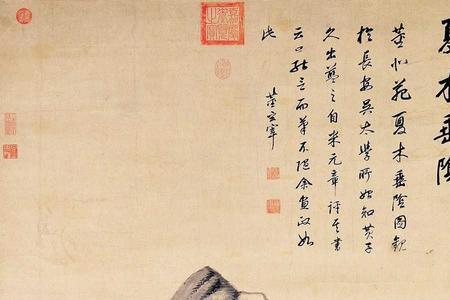 夏木垂陰
董北苑夏木垂陰圖觀
於長安吳太學所始知黃子
久出藍之自米元章評其書
云口能言而筆不隨余畫政如
此
董玄宰